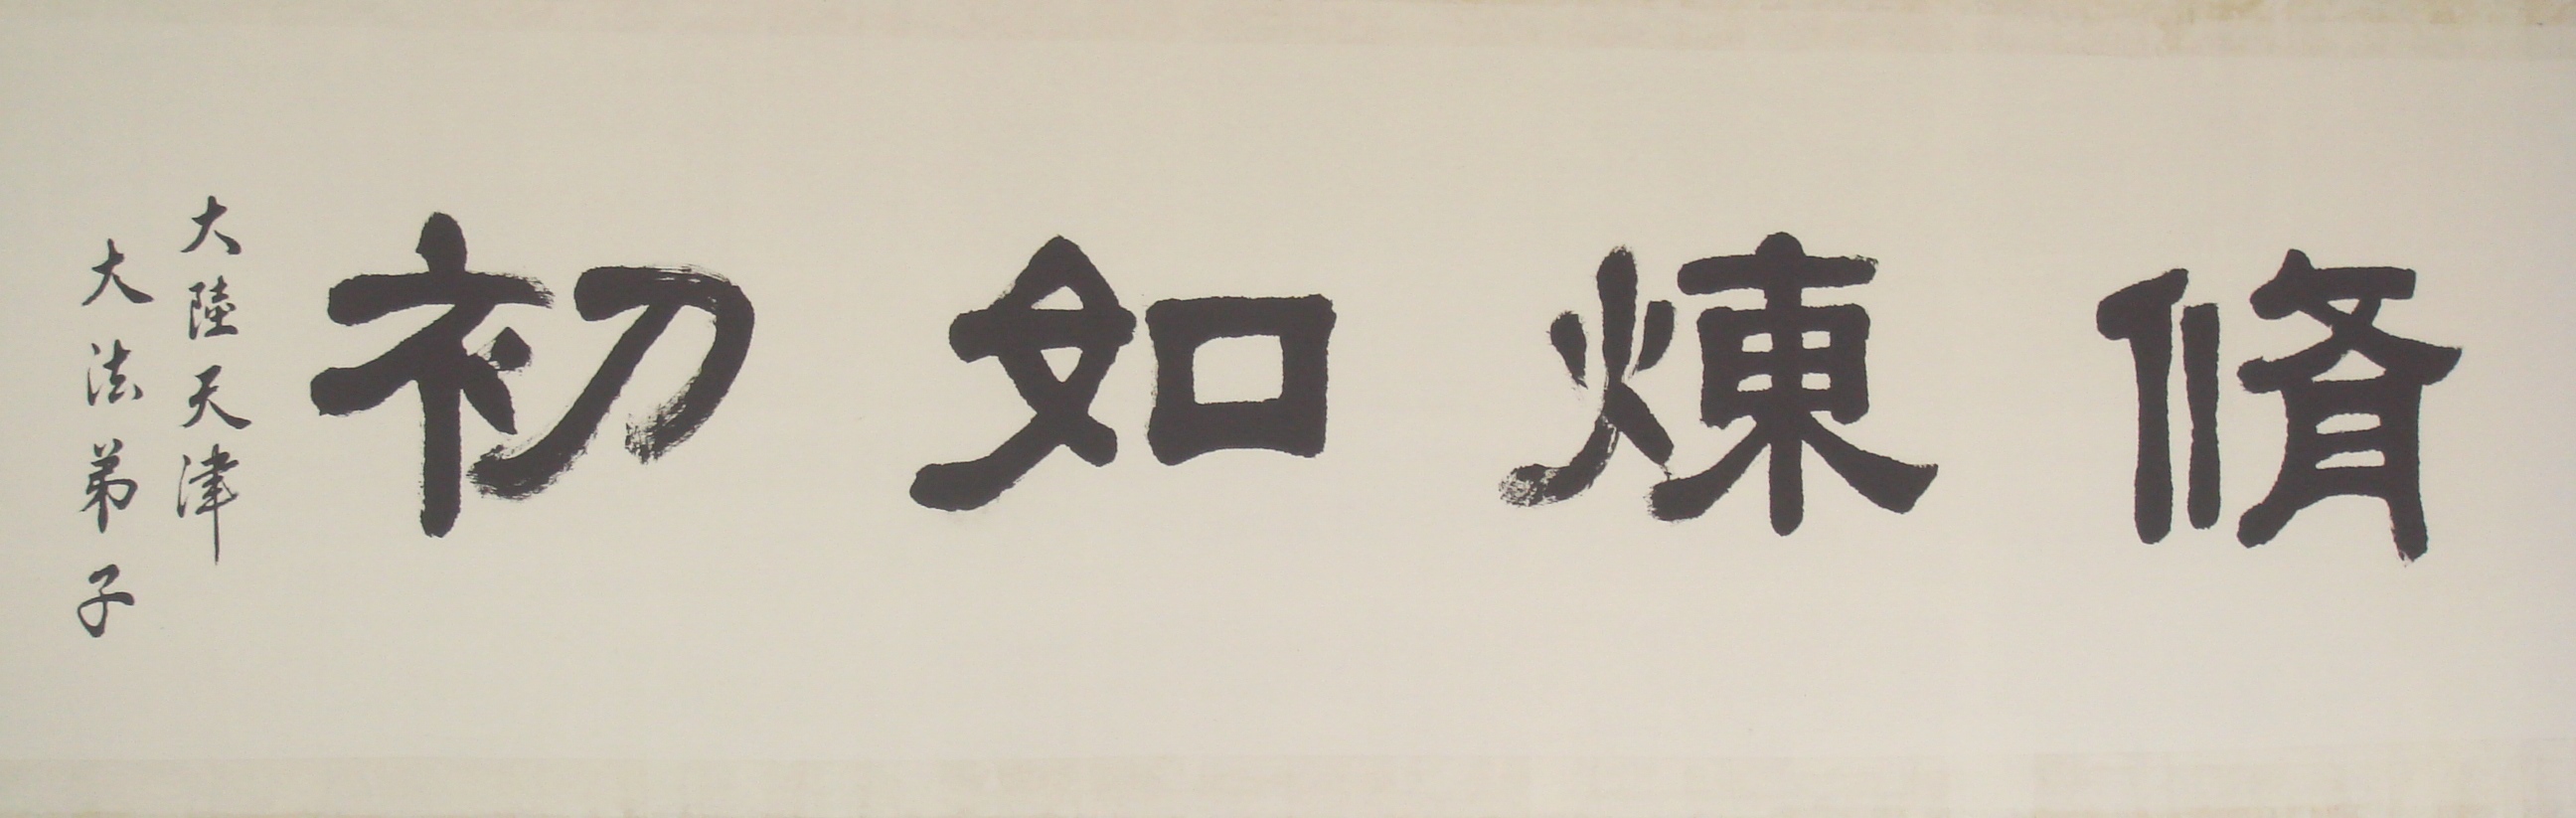 脩煉如初
大陸天津
大法弟子